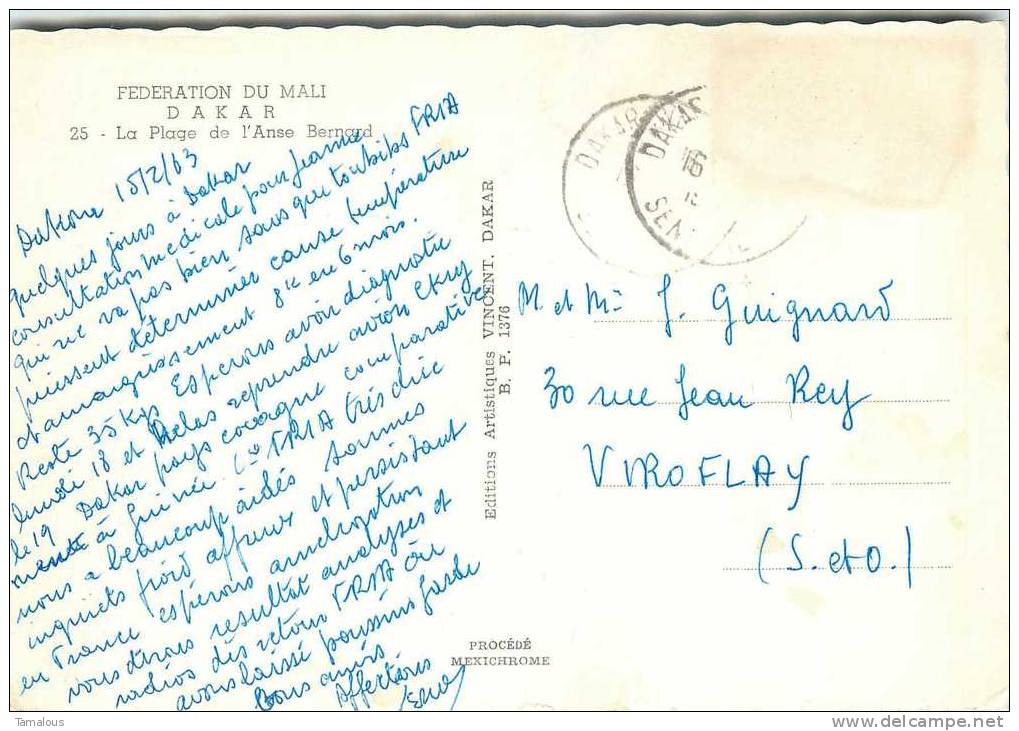 FEDERATION DU MALI
DAKAR
25 - La Plage de l'Anse Bernard
15/2/63
Quelques jours à Dakar
consultation médicale pour Jeanne
qui ne va pas bien sans que toubibs FRIA
puissent déterminer cause température
et amaigrissement 8 k en 6 mois.
Reste 35 kgs Espérons avoir diagnostic
lundi 18 et hélas reprendre avion CKRY
le 19 Dakar pays cocagne comparative
ment à Guinée. Cie FRIA très chic
nous a beaucoup aidés sommes
inquiets froid affreux et persistant
en France espérons amélioration
vous dirons resultat analyses et
radios dès retour FRIA où
avons laissé poussins garde
bons amis.
Affections
Editions Artistiques VINCENT. DAKAR
B. P. 1376
PROCÉDÉ
MEXICHROME
DAKAR
DAKAR
16
SEN
M et Me J. Guignard
30 rue Jean Rey
VIROFLAY
(S. et O.)
Tamalous
www.delcampe.net